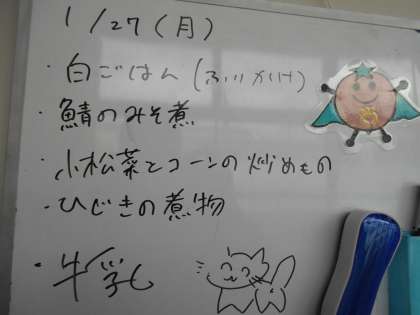 1/27(月)
・白ごはん(ふりかけ)
・鯖のみそ煮
・小松菜とコーンの炒めもの
・ひじきの煮物
・牛乳